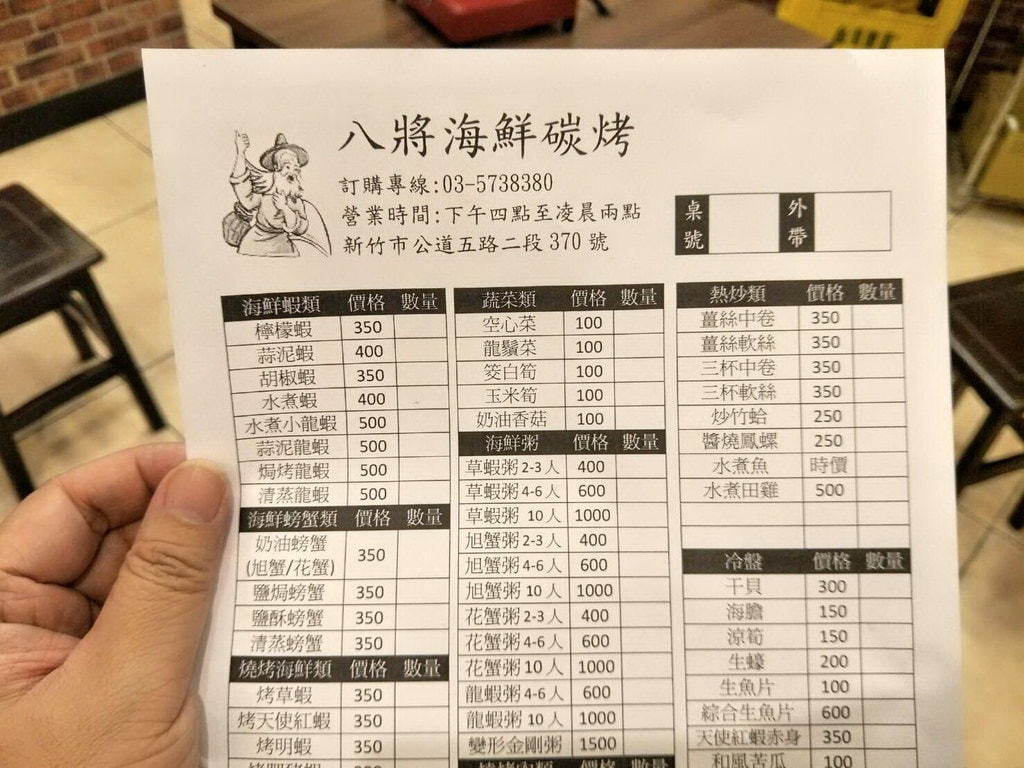 八將海鮮碳烤
訂購專線:03-5738380
營業時間:下午四點至凌晨兩點
新竹市公道五路二段 370 號
桌號
外帶
海鮮蝦類 價格 數量
檸檬蝦 350
蒜泥蝦 400
胡椒蝦 350
水煮蝦 400
水煮小龍蝦 500
蒜泥龍蝦 500
焗烤龍蝦 500
清蒸龍蝦 500
海鮮螃蟹類 價格 數量
奶油螃蟹
(旭蟹/花蟹) 350
鹽焗螃蟹 350
鹽酥螃蟹 350
清蒸螃蟹 350
燒烤海鮮類 價格 數量
烤草蝦 350
烤天使紅蝦 350
烤明蝦 350
蔬菜類 價格 數量
空心菜 100
龍鬚菜 100
筊白筍 100
玉米筍 100
奶油香菇 100
海鮮粥 價格 數量
草蝦粥 2-3 人 400
草蝦粥 4-6 人 600
草蝦粥 10 人 1000
旭蟹粥 2-3 人 400
旭蟹粥 4-6 人 600
旭蟹粥 10 人 1000
花蟹粥 2-3 人 400
花蟹粥 4-6 人 600
花蟹粥 10 人 1000
龍蝦粥 4-6 人 600
龍蝦粥 10 人 1000
變形金剛粥 1500
價格 數量
熱炒類 價格 數量
薑絲中卷 350
薑絲軟絲 350
三杯中卷 350
三杯軟絲 350
炒竹蛤 250
醬燒鳳螺 250
水煮魚 時價
水煮田雞 500
冷盤 價格 數量
干貝 300
海膽 150
涼筍 150
生蠔 200
生魚片 100
綜合生魚片 600
天使紅蝦赤身 350
和風苦瓜 100